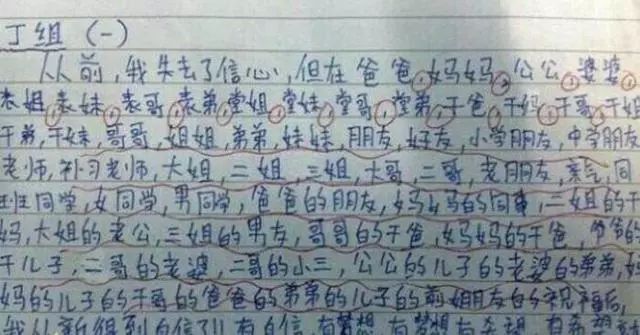 丁组（一）
从前，我失去了信心，但在爸爸，妈妈，公公，婆婆，
表姐，表妹，表哥，表弟，堂姐，堂妹，堂哥，堂弟，干爸，干妈，干哥，干姐
干弟，干妹，哥哥，姐姐，弟弟，妹妹，朋友，好友，小学朋友，中学朋友
老师，补习老师，大姐，二姐，三姐，大哥，二哥，老朋友，亲戚，同
班同学，女同学，男同学，爸爸的朋友，妈妈的同事，二姐的
妈，大姐的老公，三姐的男友，哥哥的干爸，妈妈的干爸，爷爷的
干儿子，二哥的老婆，二哥的小三，公公的儿子的老婆的弟弟，
妈的儿子的干哥的爸爸的弟弟的儿子的前女朋友的祝福后，
我从新得到自信了!! 有自信，有梦想